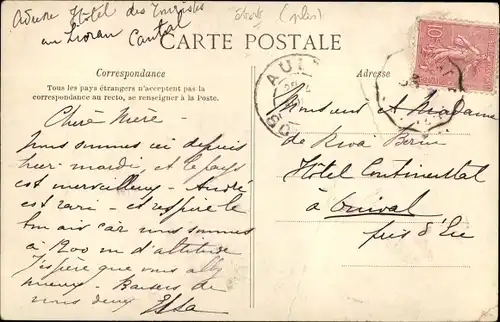 Adresse Hôtel des Touristes
au Lioran Cantal
CARTE POSTALE
Correspondance
Tous les pays étrangers n'acceptent pas la
correspondance au recto, se renseigner à la Poste.
Adresse
Chère Mère -
Nous sommes ici depuis
hier mardi, et le pays
est merveilleux - André
est ravi - et respire le
bon air car nous sommes
à 1200 m d'altitude
J'espère que vous allez
mieux - Baisers de
nous deux
Monsieur et Madame
de
Hôtel Continental
à Onival
près d'Eu
10